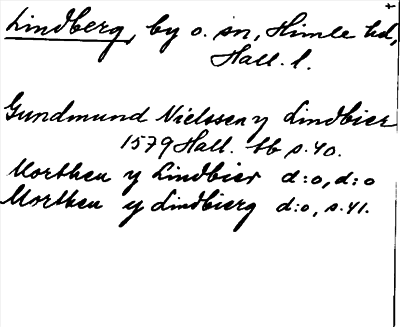 Lindberg, by o. sn, Himle hd,
Hall. l.
Gundmund Nielssen y Lindbier
1579 Hall. tb s. 40.
Morthen y Lindbier d:o, d:o
Morthen y Lindbierg d:o, s. 41.